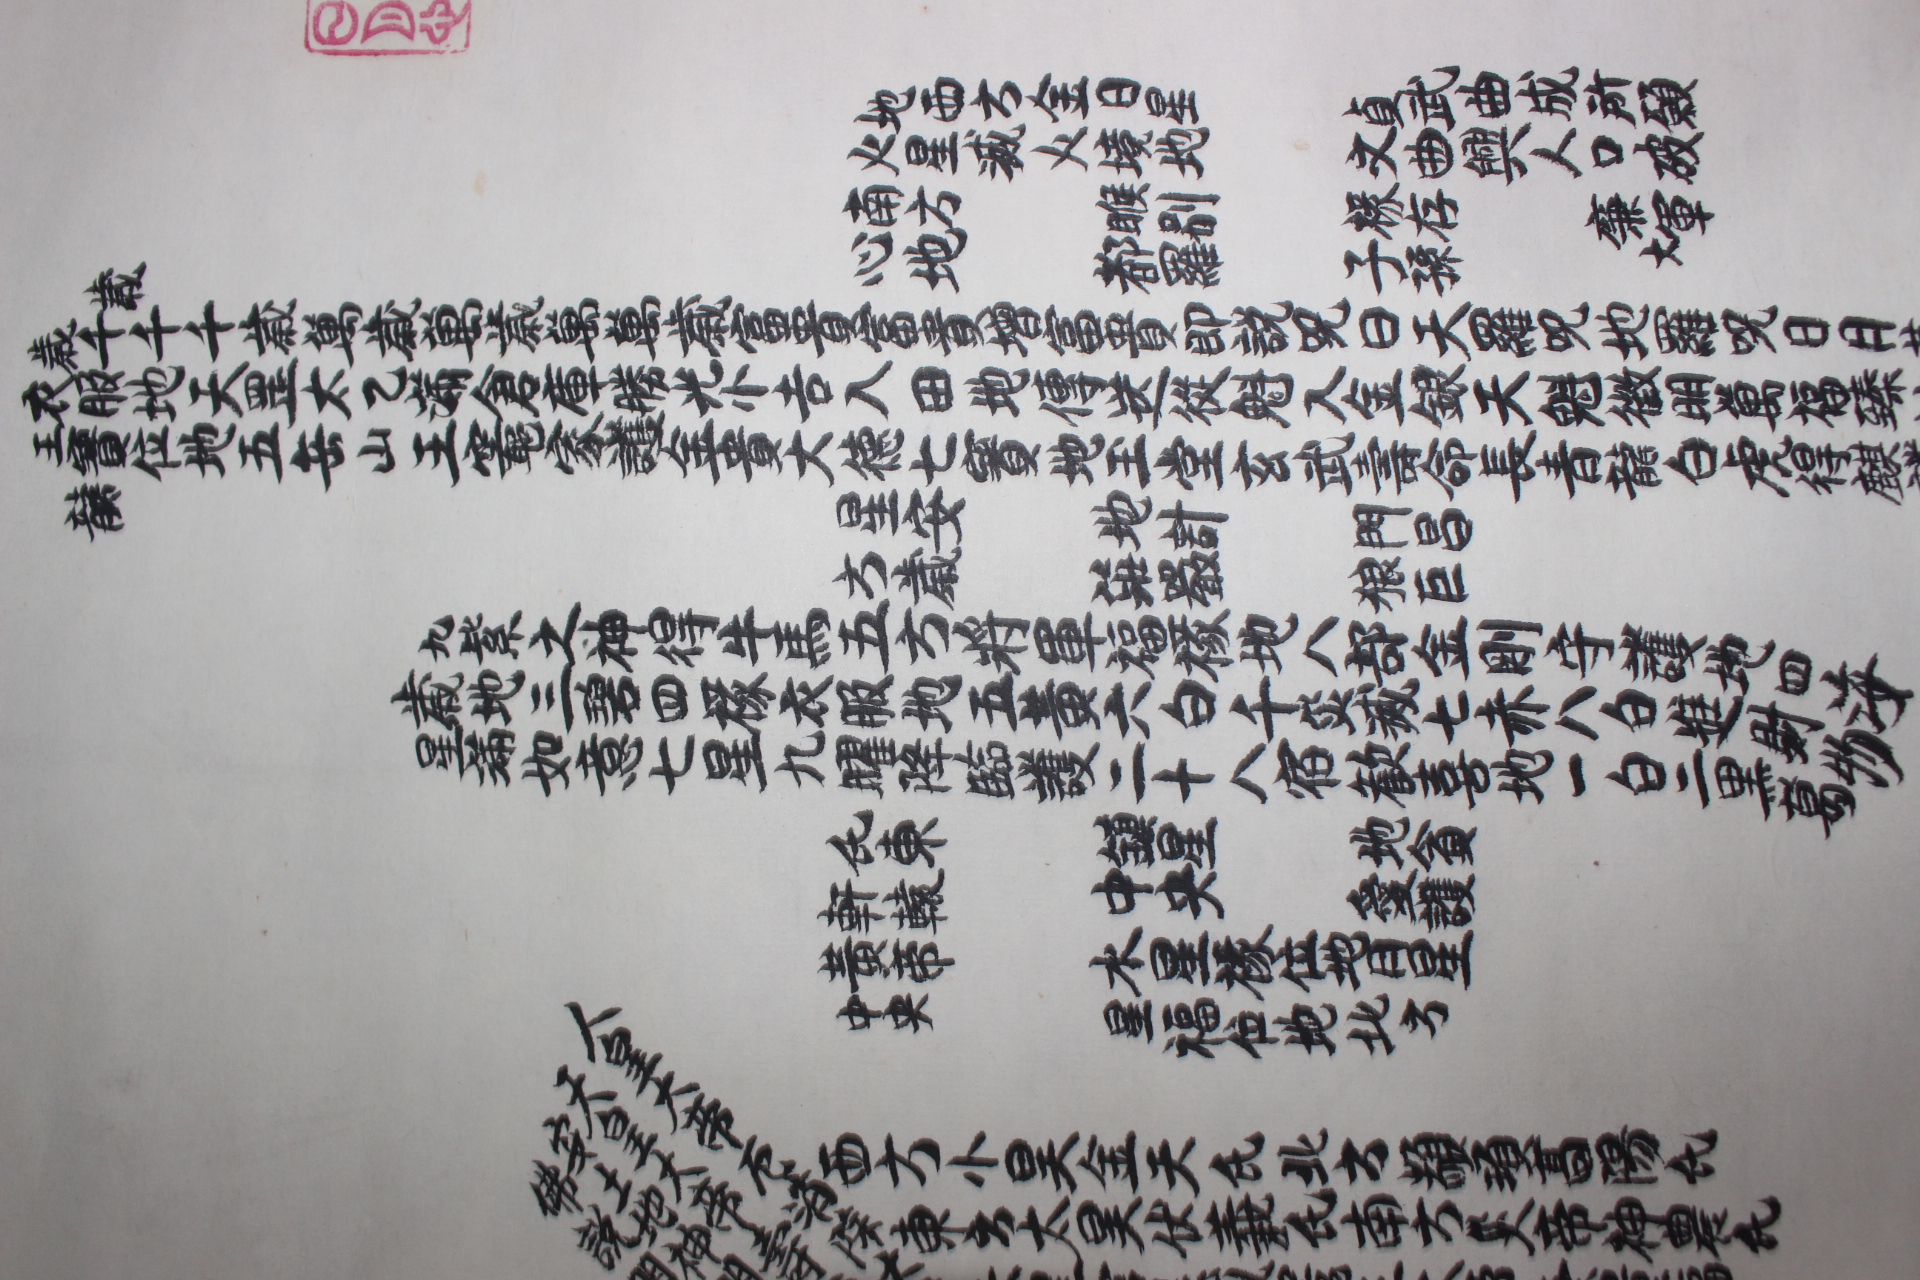 地西方金日星
火星滅火境地
南方
心地
貞武曲成所願
文曲興人口破
祿存
子孫
廉軍
大
睺別
都羅
歳
歳千千千歳萬歳萬歳萬萬歳富貴富貴增富貴即説呪曰天羅呪地羅呪日月
衣服地天罡太乙滿倉庫勝光小吉入田地傳送從魁入金銀天魁徵明萬福臻
王寶位地五岳山王竈家護金貴大德七寶地王堂玄武壽命長青龍白虎得麒
龍
星安
方歳
地計
莊嚴
門昌
狼巨
九紫之神得牛馬五方將軍福祿地八部金剛守護地四海
歳地三碧四祿衣服地五黃六白千災滅七赤八白進財物
星滿如意七星九曜降臨護二十八宿歡喜地一白二黑萬
氏東
軒轅
黃帝
中央
鎮星
中央
水星祿位地月星
星福位地北方
地貪
愛護
人皇大帝
天皇大帝
西方小昊金天氏北方顓頊高陽氏
東方太昊伏羲氏南方炎帝神農氏